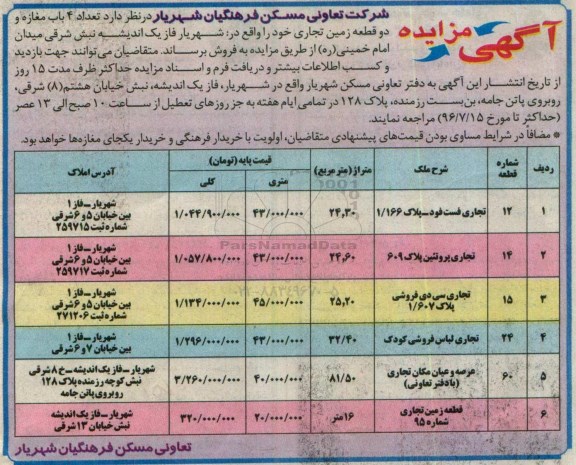 آگهی مزایده
شرکت تعاونی مسکن فرهنگیان شهریار درنظر دارد تعداد ۴ باب مغازه و
دو قطعه زمین تجاری خود را واقع در: شهریار فاز یک اندیشه نبش شرقی میدان
امام خمینی(ره) از طریق مزایده به فروش برساند. متقاضیان می‌توانند جهت بازدید
و کسب اطلاعات بیشتر و دریافت فرم و اسناد مزایده حداکثر ظرف مدت ۱۵ روز
از تاریخ انتشار این آگهی به دفتر تعاونی مسکن شهریار واقع در شهریار، فاز یک اندیشه، نبش خیابان هشتم(۸) شرقی،
روبروی پاتن جامه، بن‌بست رزمنده، پلاک ۱۲۸ در تمامی ایام هفته به جز روزهای تعطیل از ساعت ۱۰ صبح الی ۱۳ عصر
(حداکثر تا مورخ ۹۶/۷/۱۵) مراجعه نمایند.
* مضافاً در شرایط مساوی بودن قیمت‌های پیشنهادی متقاضیان، اولویت با خریدار فرهنگی و خریدار یکجای مغازه‌ها خواهد بود.
ردیف شماره قطعه شرح ملک متراژ (متر مربع) قیمت پایه (تومان) آدرس املاک
متری کلی
۱ ۱۲ تجاری فست فود-پلاک ۱/۱۶۶ ۲۴,۳۰ ۴۳/۰۰۰/۰۰۰ ۱/۰۴۴/۹۰۰/۰۰۰ شهریار-فاز۱
بین خیابان ۵ و ۶ شرقی
شماره ثبت ۲۵۹۷۱۵
۲ ۱۴ تجاری پروتئین پلاک ۶۰۹ ۲۴,۶۰ ۴۳/۰۰۰/۰۰۰ ۱/۰۵۷/۸۰۰/۰۰۰ شهریار-فاز۱
بین خیابان ۵ و ۶ شرقی
شماره ثبت ۲۵۹۷۱۷
۳ ۱۵ تجاری سی دی فروشی پلاک ۱/۶۰۷ ۲۵,۲۰ ۴۵/۰۰۰/۰۰۰ ۱/۱۳۴/۰۰۰/۰۰۰ شهریار-فاز۱
بین خیابان ۵ و ۶ شرقی
شماره ثبت ۲۷۱۲۰۶
۴ ۲۴ تجاری لباس فروشی کودک ۳۲/۴۰ ۴۳/۰۰۰/۰۰۰ ۱/۲۹۶/۰۰۰/۰۰۰ شهریار-فاز۱
بین خیابان ۷ و ۶ شرقی
۵ ۶۰ عرصه و عیان مکان تجاری (بادفتر تعاونی) ۸۱/۵۰ ۴۰/۰۰۰/۰۰۰ ۳/۲۶۰/۰۰۰/۰۰۰ شهریار-فاز یک اندیشه-خ ۸ شرقی
نبش کوچه رزمنده پلاک ۱۲۸
روبروی پاتن جامه
۶ قطعه زمین تجاری شماره ۹۵ ۱۶متر ۲۰/۰۰۰/۰۰۰ ۳۲۰/۰۰۰/۰۰۰ شهریار-فاز یک اندیشه
نبش خیابان ۱۳ شرقی
تعاونی مسکن فرهنگیان شهریار
ParsNamadData